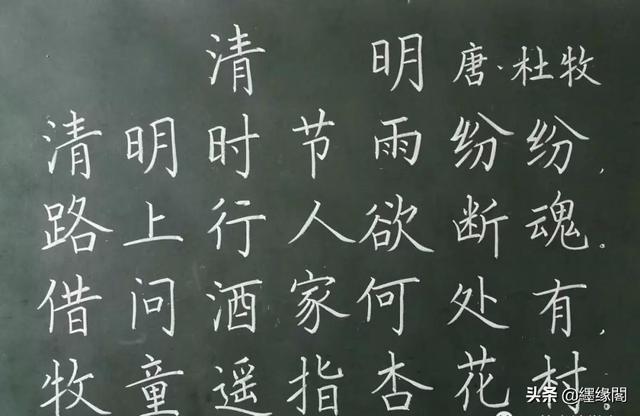 清明 唐·杜牧
清明时节雨纷纷，
路上行人欲断魂。
借问酒家何处有，
牧童遥指杏花村。
头条 @缘閣